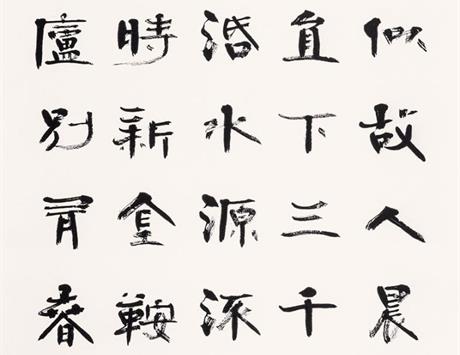 似故人晨
直下三千
活水源流
時新金鞍
廬別有春